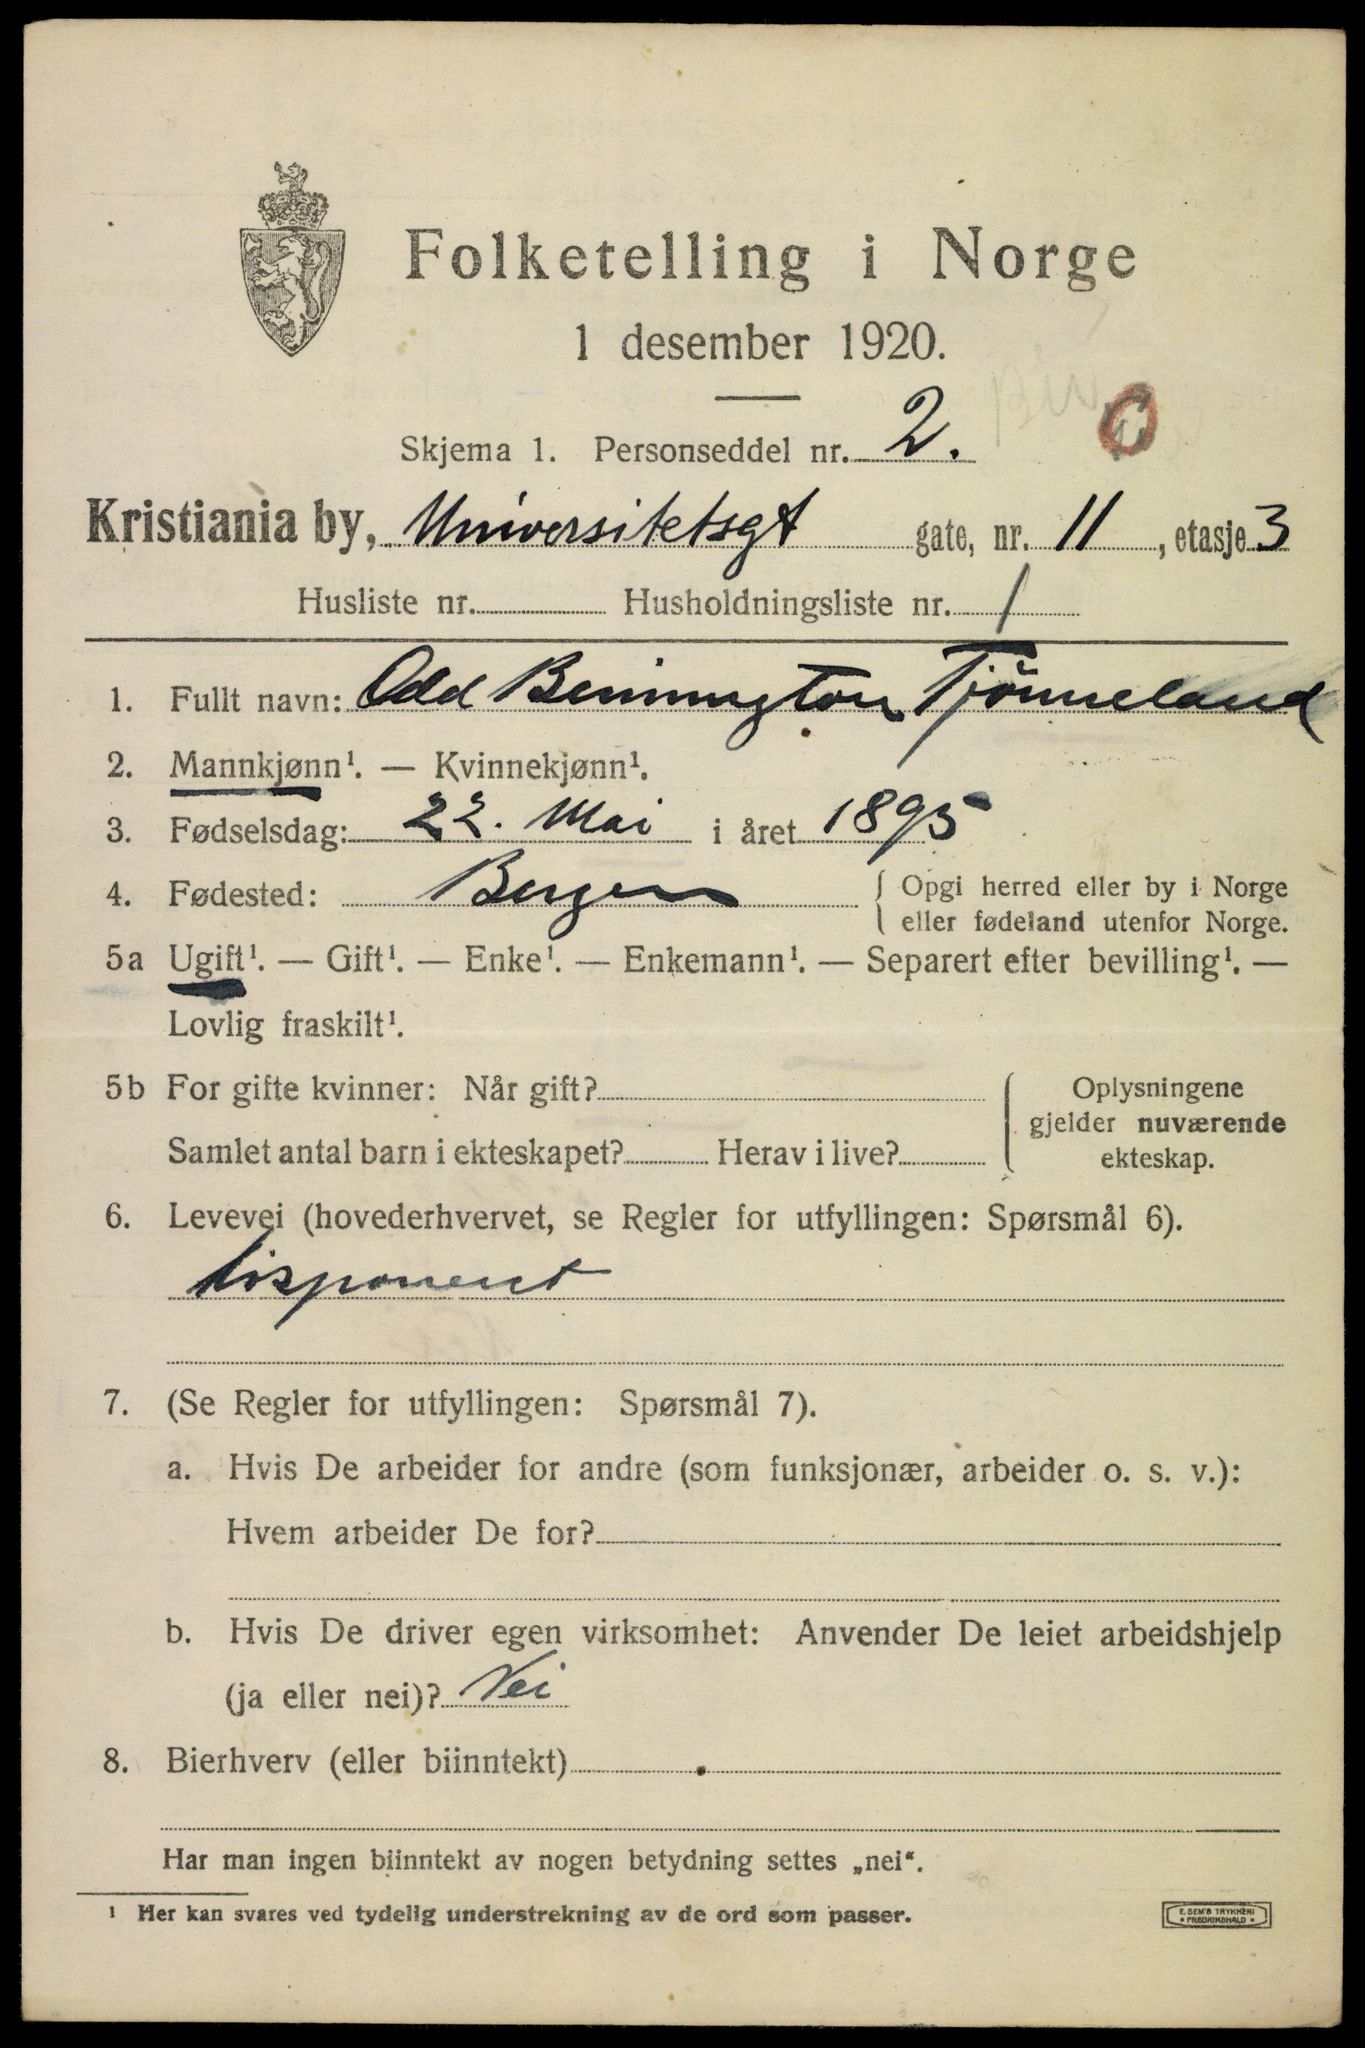 Folketelling i Norge
1 desember 1920.
Skjema 1. Personseddel nr. 2.
Kristiania by, Universitetsgt gate, nr. 11, etasje 3
Husliste nr. Husholdningsliste nr. 1
1. Fullt navn: Odd Bennington Tjönneland
2. Mannkjønn¹. — Kvinnekjønn¹.
3. Fødselsdag: 22. Mai i året 1895
4. Fødested: Bergen { Opgi herred eller by i Norge
eller fødeland utenfor Norge.
5a Ugift¹. — Gift¹. — Enke¹. — Enkemann¹. — Separert efter bevilling¹. —
Lovlig fraskilt¹.
5b For gifte kvinner: Når gift?
Samlet antal barn i ekteskapet? Herav i live?
Oplysningene
gjelder nuværende
ekteskap.
6. Levevei (hovederhvervet, se Regler for utfyllingen: Spørsmål 6).
Disponent
7. (Se Regler for utfyllingen: Spørsmål 7).
a. Hvis De arbeider for andre (som funksjonær, arbeider o. s. v.):
Hvem arbeider De for?
b. Hvis De driver egen virksomhet: Anvender De leiet arbeidshjelp
(ja eller nei)? Nei
8. Bierhverv (eller biinntekt)
Har man ingen biinntekt av nogen betydning settes „nei“.
¹ Her kan svares ved tydelig understrekning av de ord som passer.
E. SEM'S TRYKKERI
FREDRIKSHALD